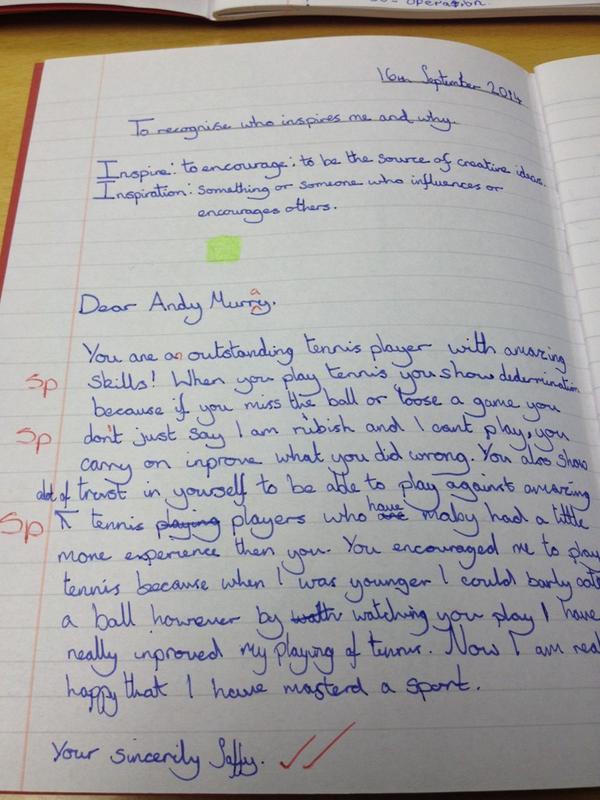 operation.
16th September 2014
To recognise who inspires me and why.
Inspire: to encourage: to be the source of creative ideas.
Inspiration: something or someone who influences or
encourages others.
a
Dear Andy Murry.
You are an outstanding tennis player with amazing
Sp skills! When you play tennis you show dedermination
because if you miss the ball or loose a game you
Sp don't just say I am rubish and I cant play, you
carry on inprove what you did wrong. You also show
alot of trust in yourself to be able to play against amazing
Sp tennis playing players who have are maby had a little
more experience then you. You encouraged me to play
tennis because when I was younger I could barly
a ball however by watching you play I have
really inproved my playing of tennis. Now I am
happy that I have masterd a sport.
Your sincerily Saffy.